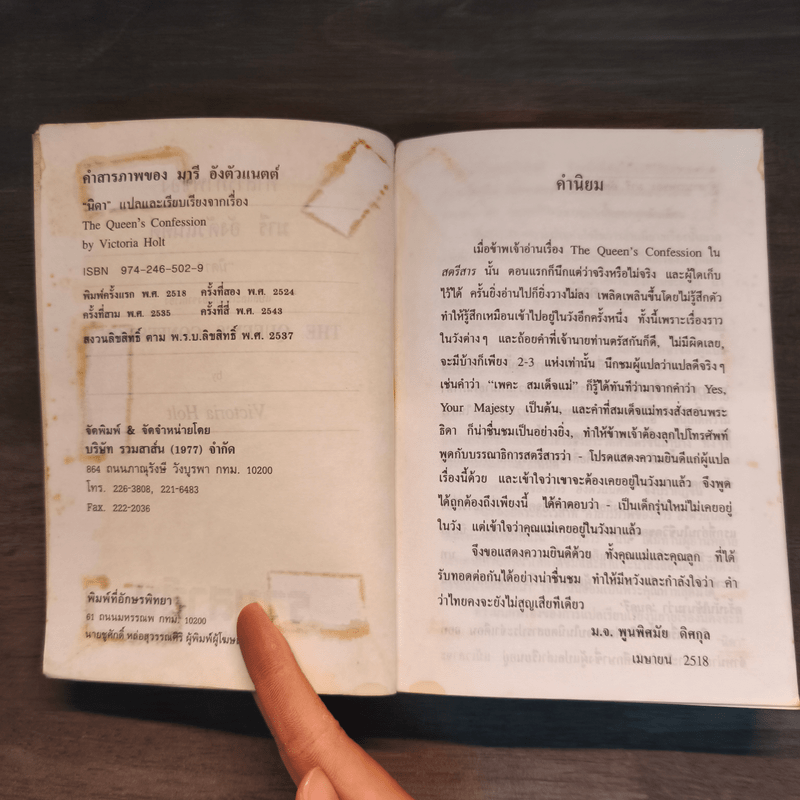 คำสารภาพของ มารี อังตัวแนตต์
"นิดา" แปลและเรียบเรียงจากเรื่อง
The Queen's Confession
by Victoria Holt
ISBN 974-246-502-9
พิมพ์ครั้งแรก พ.ศ. 2518 ครั้งที่สอง พ.ศ. 2524
ครั้งที่สาม พ.ศ. 2535 ครั้งที่สี่ พ.ศ. 2543
สงวนลิขสิทธิ์ ตาม พ.ร.บ.ลิขสิทธิ์ พ.ศ. 2537
จัดพิมพ์ & จัดจำหน่ายโดย
บริษัท รวมสาส์น (1977) จำกัด
864 ถนนภาณุรังษี วังบูรพา กทม. 10200
โทร. 226-3808, 221-6483
Fax. 222-2036
พิมพ์ที่อักษรพิทยา
61 ถนนมหรรณพ กทม. 10200
นายชูศักดิ์ หล่อสุวรรณศิริ ผู้พิมพ์ผู้โฆษ
คำนิยม
เมื่อข้าพเจ้าอ่านเรื่อง The Queen's Confession ใน
สตรีสาร นั้น ตอนแรกก็นึกแต่ว่าจริงหรือไม่จริง และผู้ใดเก็บ
ไว้ได้ ครั้นยิ่งอ่านไปก็ยิ่งวางไม่ลง เพลิดเพลินขึ้นโดยไม่รู้สึกตัว
ทำให้รู้สึกเหมือนเข้าไปอยู่ในวังอีกครั้งหนึ่ง ทั้งนี้เพราะเรื่องราว
ในวังต่างๆ และถ้อยคำที่เจ้านายท่านตรัสกันก็ดี, ไม่มีผิดเลย,
จะมีบ้างก็เพียง 2-3 แห่งเท่านั้น นึกชมผู้แปลว่าแปลดีจริงๆ
เช่นคำว่า "เพคะ สมเด็จแม่" ก็รู้ได้ทันทีว่ามาจากคำว่า Yes,
Your Majesty เป็นต้น, และคำที่สมเด็จแม่ทรงสั่งสอนพระ
ธิดา ก็น่าชื่นชมเป็นอย่างยิ่ง, ทำให้ข้าพเจ้าต้องลุกไปโทรศัพท์
พูดกับบรรณาธิการสตรีสารว่า - โปรดแสดงความยินดีแก่ผู้แปล
เรื่องนี้ด้วย และเข้าใจว่าเขาจะต้องเคยอยู่ในวังมาแล้ว จึงพูด
ได้ถูกต้องถึงเพียงนี้ ได้คำตอบว่า - เป็นเด็กรุ่นใหม่ไม่เคยอยู่
ในวัง แต่เข้าใจว่าคุณแม่เคยอยู่ในวังมาแล้ว
จึงขอแสดงความยินดีด้วย ทั้งคุณแม่และคุณลูก ที่ได้
รับทอดต่อกันได้อย่างน่าชื่นชม ทำให้มีหวังและกำลังใจว่า คำ
ว่าไทยคงจะยังไม่สูญเสียทีเดียว
ม.จ. พูนพิศมัย ดิศกุล
เมษายน 2518